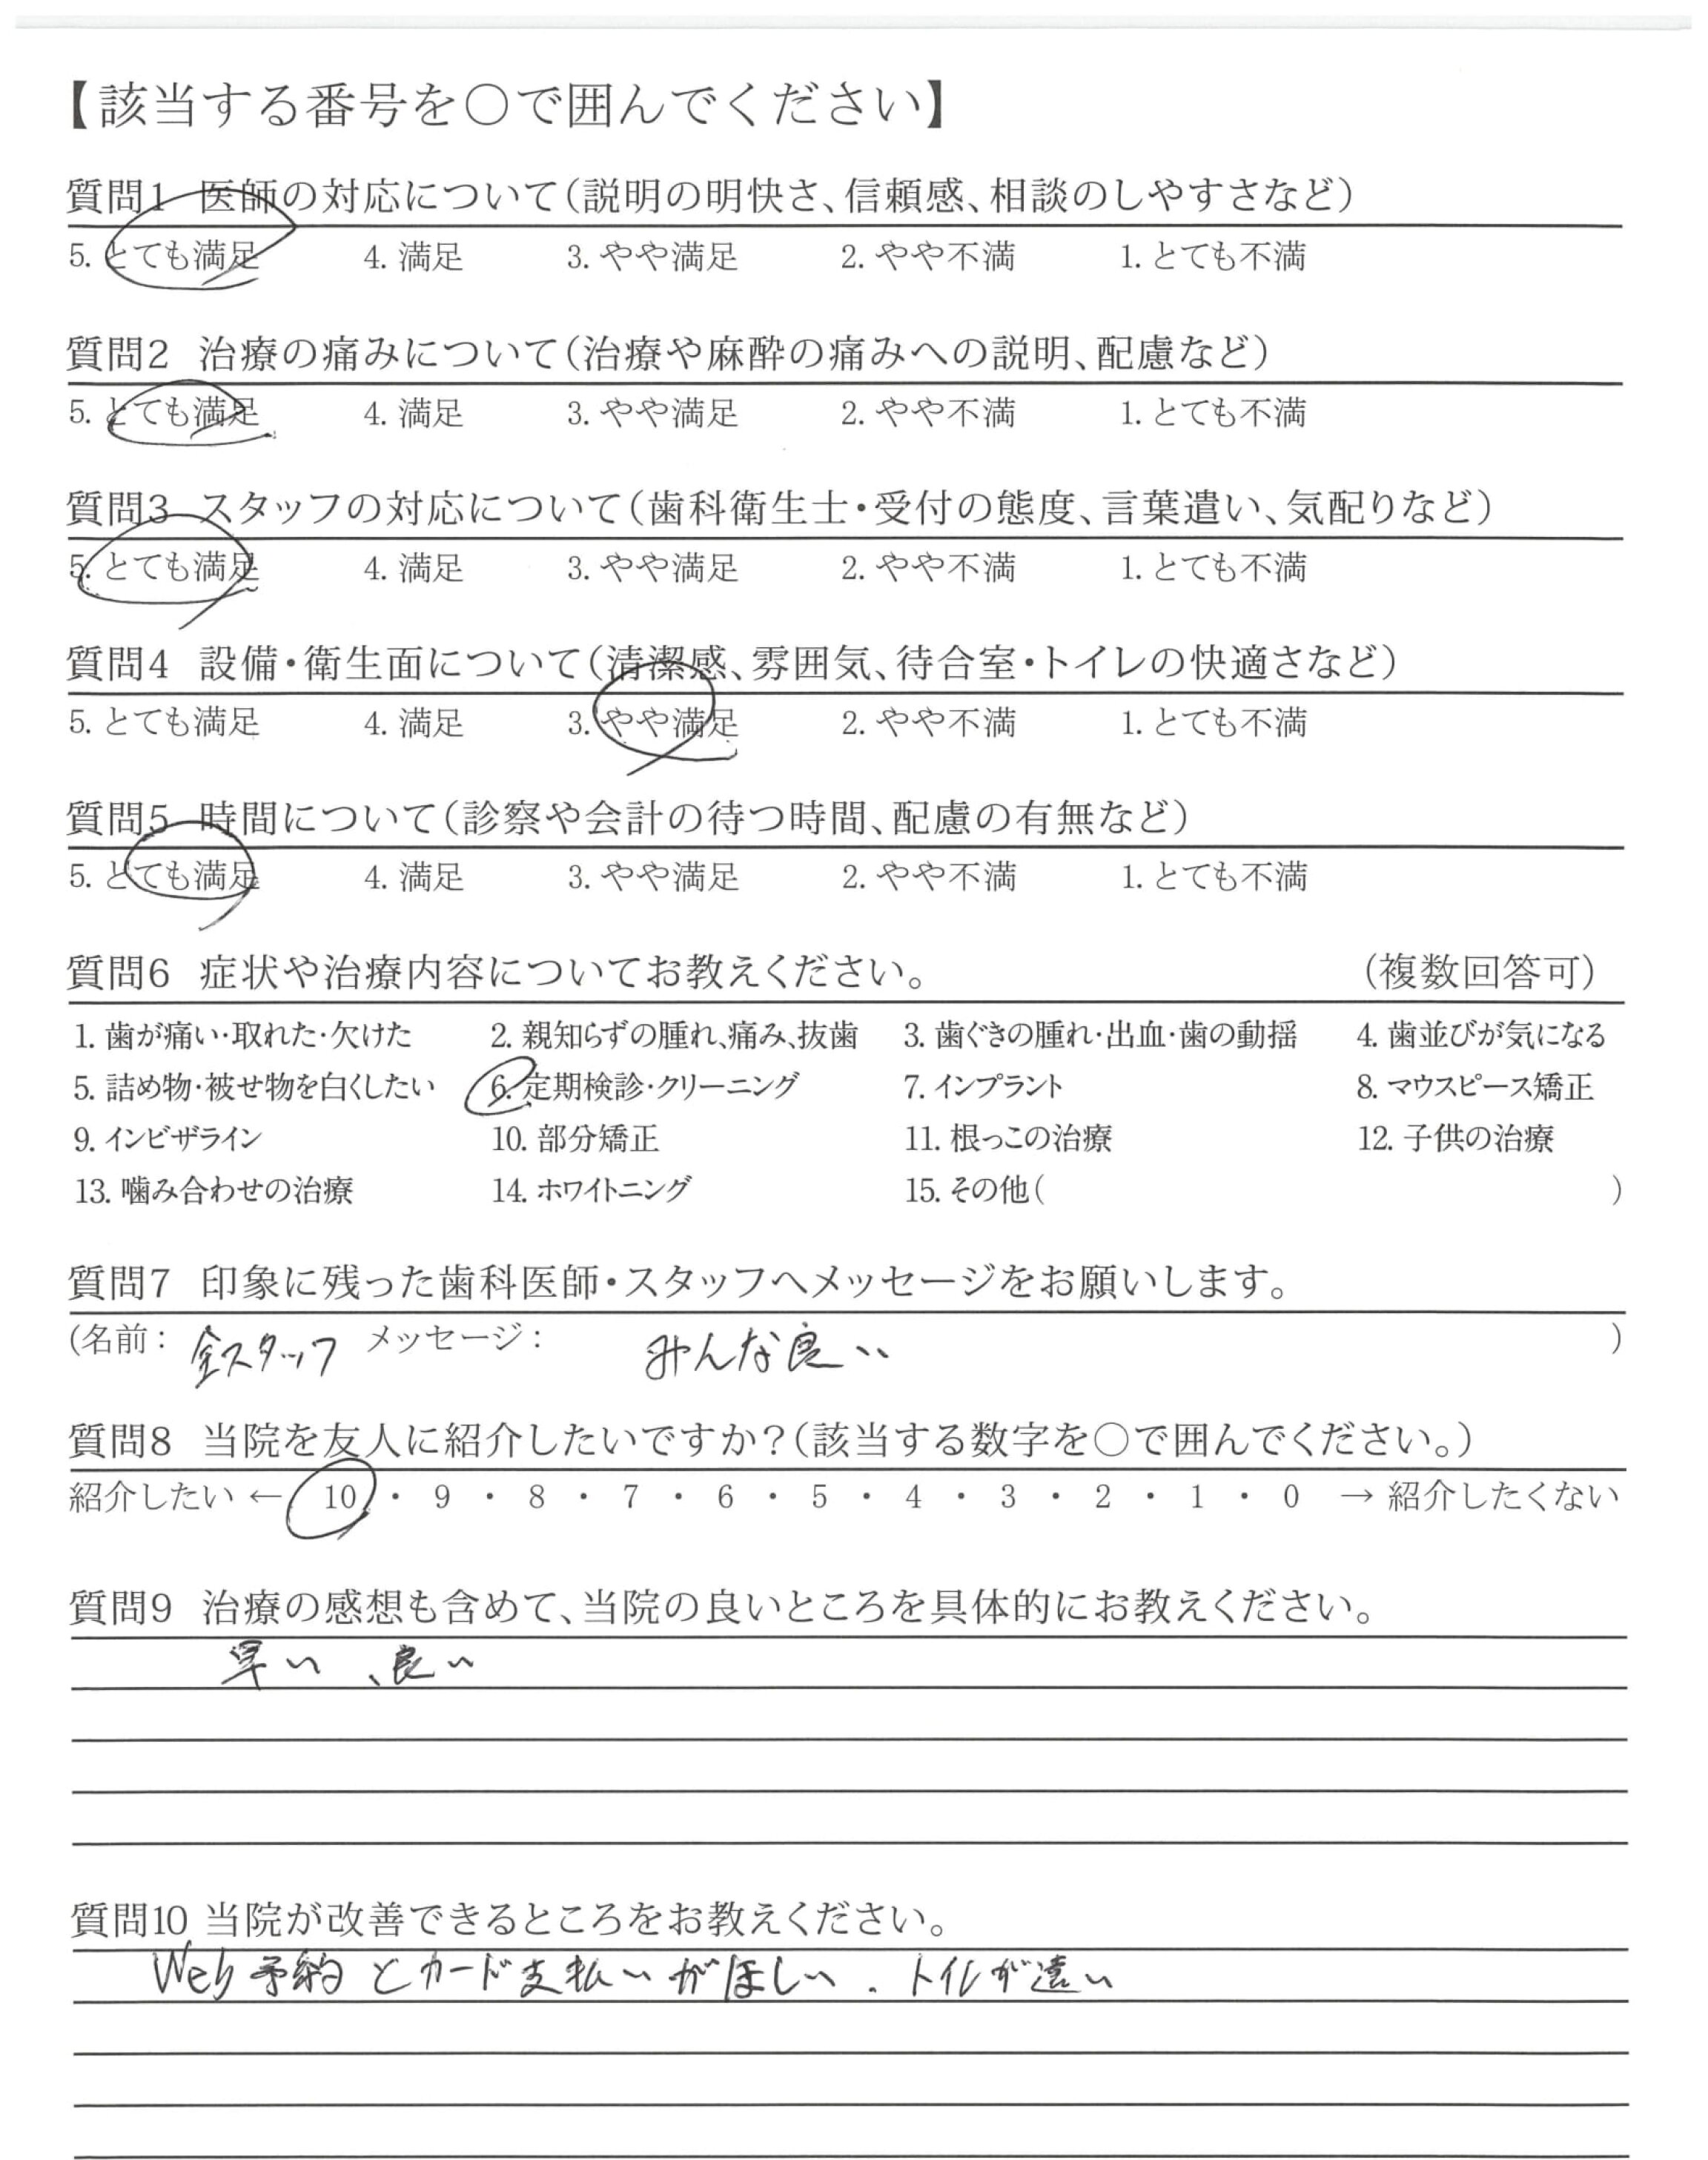 【該当する番号を○で囲んでください】
質問1 医師の対応について(説明の明快さ、信頼感、相談のしやすさなど)
5. とても満足 4. 満足 3. やや満足 2. やや不満 1. とても不満
質問2 治療の痛みについて(治療や麻酔の痛みへの説明、配慮など)
5. とても満足 4. 満足 3. やや満足 2. やや不満 1. とても不満
質問3 スタッフの対応について(歯科衛生士・受付の態度、言葉遣い、気配りなど)
5. とても満足 4. 満足 3. やや満足 2. やや不満 1. とても不満
質問4 設備・衛生面について(清潔感、雰囲気、待合室・トイレの快適さなど)
5. とても満足 4. 満足 3. やや満足 2. やや不満 1. とても不満
質問5 時間について(診察や会計の待つ時間、配慮の有無など)
5. とても満足 4. 満足 3. やや満足 2. やや不満 1. とても不満
質問6 症状や治療内容についてお教えください。 (複数回答可)
1. 歯が痛い・取れた・欠けた 2. 親知らずの腫れ、痛み、抜歯 3. 歯ぐきの腫れ・出血・歯の動揺 4. 歯並びが気になる
5. 詰め物・被せ物を白くしたい 6. 定期検診・クリーニング 7. インプラント 8. マウスピース矯正
9. インビザライン 10. 部分矯正 11. 根っこの治療 12. 子供の治療
13. 噛み合わせの治療 14. ホワイトニング 15. その他( )
質問7 印象に残った歯科医師・スタッフへメッセージをお願いします。
(名前: 全スタッフ メッセージ: みんな良い )
質問8 当院を友人に紹介したいですか?(該当する数字を○で囲んでください。)
紹介したい ← 10 ・ 9 ・ 8 ・ 7 ・ 6 ・ 5 ・ 4 ・ 3 ・ 2 ・ 1 ・ 0 → 紹介したくない
質問9 治療の感想も含めて、当院の良いところを具体的にお教えください。
早い、良い
質問10 当院が改善できるところをお教えください。
Web予約とカード支払いがほしい. トイレが遠い